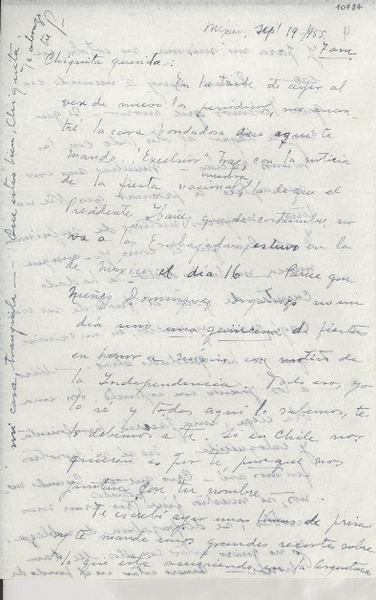 10784
México, Sept 19/955.
7 am
Chiquita querida:
En la tarde de ayer al
ver de nuevo los periódicos, me encon-
tré la cosa sondadora que aquí te
mando. "Excelsior" trae, con la noticia
de la fiesta nacional nuestra la de que el
Presidente Ibáñez, que de costumbre no
va a las Embajadas, estuvo en la
de México el día 16 — Parece que
Núñez Domínguez organizó no un
día sino una quincena de fiestas
en honor a México con motivo de
la Independencia. Todo eso, yo
lo sé y todos aquí lo sabemos, te
lo debemos a ti. Si en Chile nos
quieren es por ti, porque nos
juntaste con tu nombre. —
Te escribí ayer unas líneas de prisa
y te mandé unos grandes recortes sobre
lo que está ocurriendo en la Argentina
mi casa tranquila — Que estés bien, Chiquita